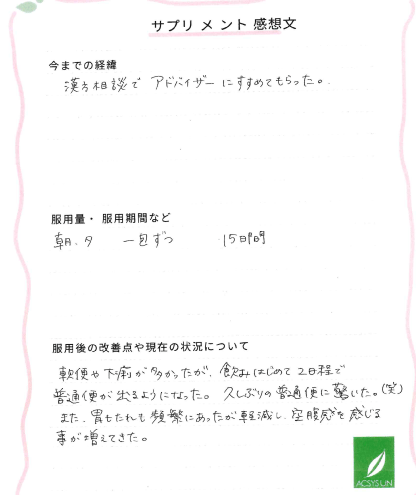 サプリメント感想文
今までの経緯
漢方相談で アドバイザーにすすめてもらった。
服用量・服用期間など
朝.夕 一包ずつ 15日間
服用後の改善点や現在の状況について
軟便や下痢が多かったが、飲みはじめて2日程で
普通便が出るようになった。久しぶりの普通便に驚いた。(笑)
また、胃もたれも頻繁にあったが軽減し、空腹感を感じる
事が増えてきた。
ACSYS LIN